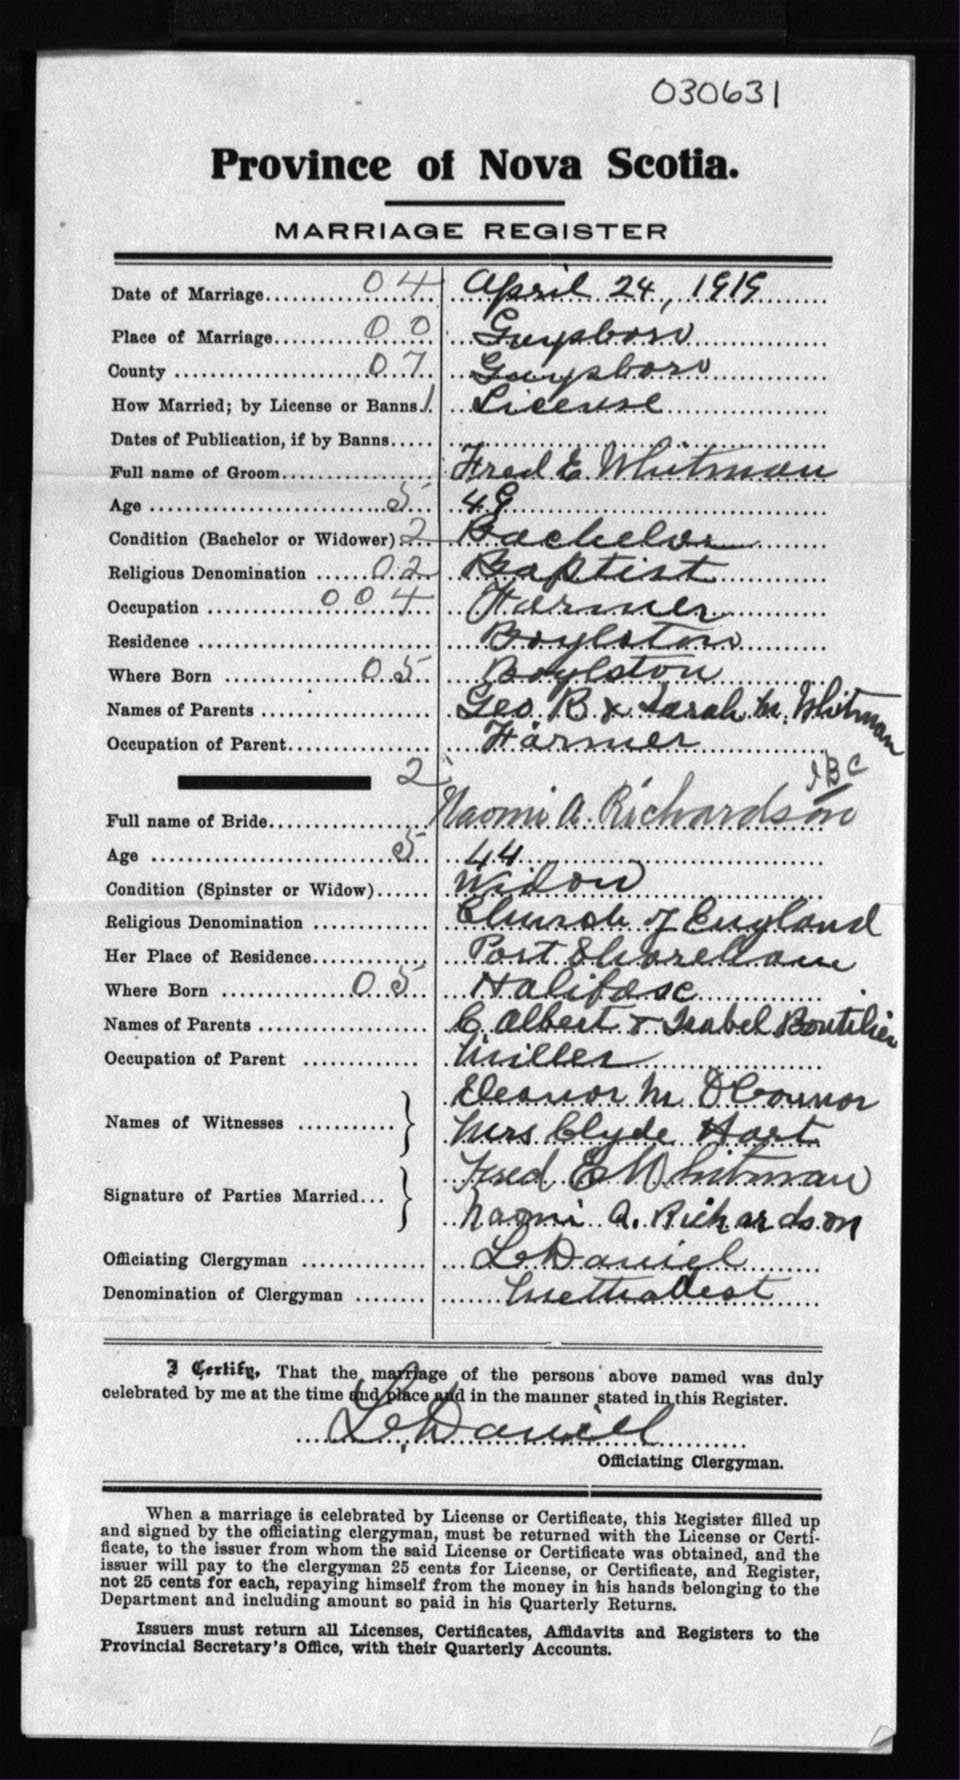 030631
Province of Nova Scotia.
MARRIAGE REGISTER
Date of Marriage 04 April 24, 1919
Place of Marriage 00 Guysboro
County 07 Guysboro
How Married; by License or Banns 1 License
Dates of Publication, if by Banns
Full name of Groom Fred E Whitman
Age 5 49
Condition (Bachelor or Widower) 2 Bachelor
Religious Denomination 02 Baptist
Occupation 004 Farmer
Residence Boylston
Where Born 05 Boylston
Names of Parents Geo B & Sarah M. Whitman
Occupation of Parent Farmer
2
Full name of Bride Naomi A. Richardson
Age 5 44
Condition (Spinster or Widow) Widow
Religious Denomination Church of England
Her Place of Residence Port
Where Born 05 Halifax
Names of Parents C Albert & Isabel Boutilier
Occupation of Parent Miller
Names of Witnesses Eleanor M O'Connor
Mrs Clyde Hart
Signature of Parties Married Fred E Whitman
Naomi A. Richardson
Officiating Clergyman L Daniel
Denomination of Clergyman Methodist
I Certify, That the marriage of the persons above named was duly
celebrated by me at the time and place and in the manner stated in this Register.
L Daniel
Officiating Clergyman.
When a marriage is celebrated by License or Certificate, this Register filled up
and signed by the officiating clergyman, must be returned with the License or Certi-
ficate, to the issuer from whom the said License or Certificate was obtained, and the
issuer will pay to the clergyman 25 cents for License, or Certificate, and Register,
not 25 cents for each, repaying himself from the money in his hands belonging to the
Department and including amount so paid in his Quarterly Returns.
Issuers must return all Licenses, Certificates, Affidavits and Registers to the
Provincial Secretary's Office, with their Quarterly Accounts.